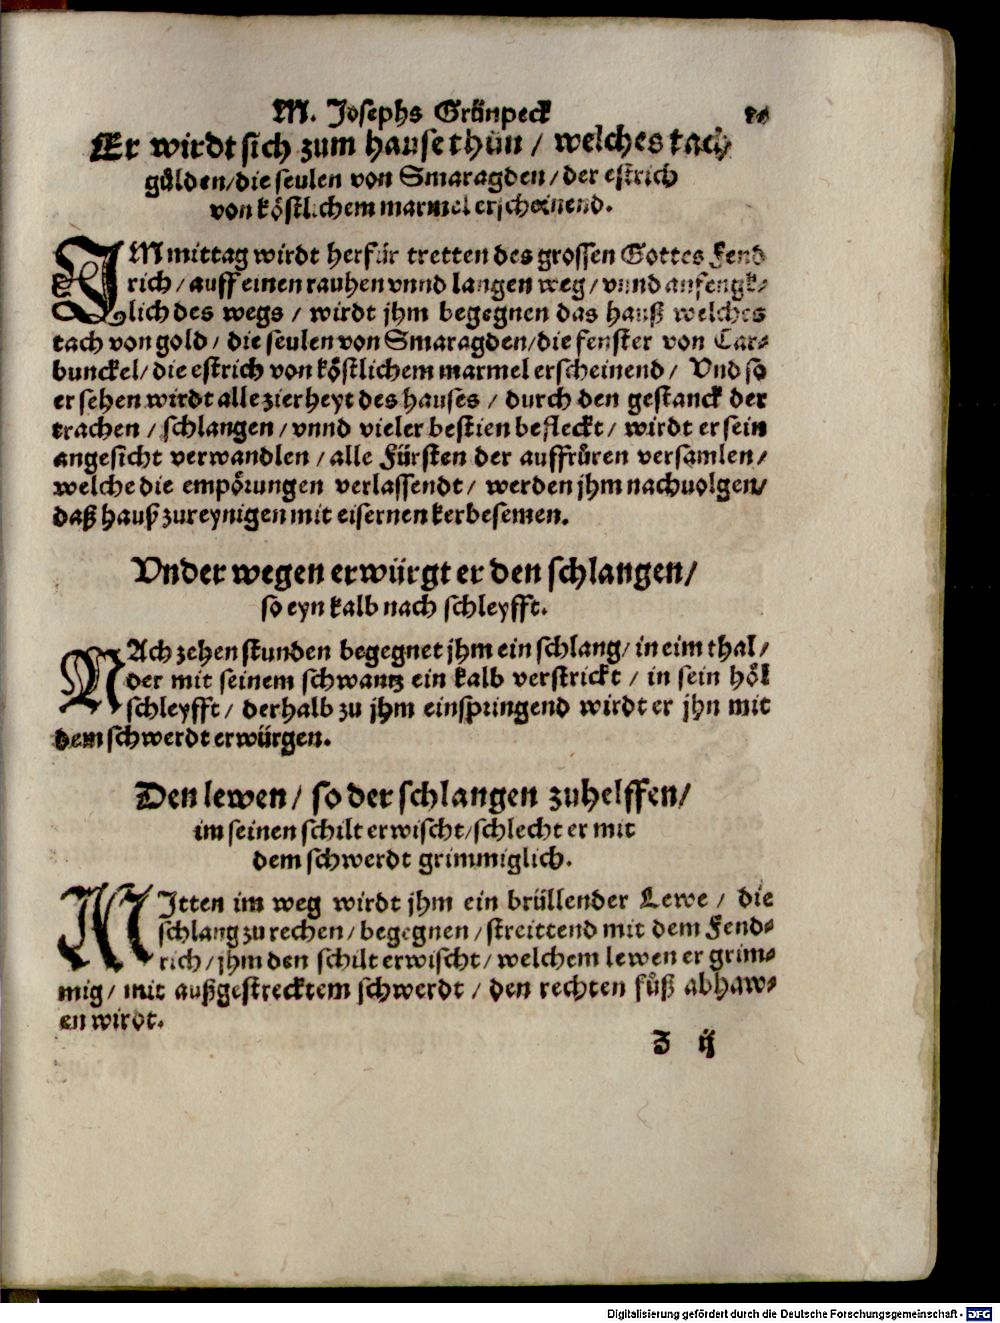 M. Josephs Grünpeck
Er wirdt sich zum hause thůn / welches tach
gülden/die seulen von Smaragden/der estrich
von köstlichem marmel erscheinend.
IM mittag wirdt herfür tretten des grossen Gottes Fend
rich/auff einen rauhen vnnd langen weg/vnnd anfengk⸗
lich des wegs / wirdt jhm begegnen das hauß welches
tach von gold/die seulen von Smaragden/die fenster von Car⸗
bunckel/die estrich von köstlichem marmel erscheinend/ Vnd so
er sehen wirdt alle zierheyt des hauses / durch den gestanck der
trachen/schlangen/vnnd vieler bestien befleckt/wirdt er sein
angesicht verwandlen/alle Fürsten der auffrůren versamlen/
welche die empörungen verlassendt/ werden jhm nachuolgen/
daß hauß zureynigen mit eisernen kerbesemen.
Vnder wegen erwürgt er den schlangen/
so eyn kalb nach schleyfft.
NAch zehen stunden begegnet jhm ein schlang/in eim thal/
der mit seinem schwantz ein kalb verstrickt / in sein höl
schleyfft/ derhalb zu jhm einspringend wirdt er jhn mit
dem schwerdt erwürgen.
Den lewen/ so der schlangen zuhelffen/
im seinen schilt erwischt/schlecht er mit
dem schwerdt grimmiglich.
MItten im weg wirdt jhm ein brüllender Lewe / die
schlang zu rechen/begegnen/streittend mit dem Fend⸗
rich/jhm den schilt erwischt/welchem lewen er grim⸗
mig/ mit außgestrecktem schwerdt/ den rechten fůß abhaw⸗
en wirdt.
Z ij
Digitalisierung gefördert durch die Deutsche Forschungsgemeinschaft - DFG